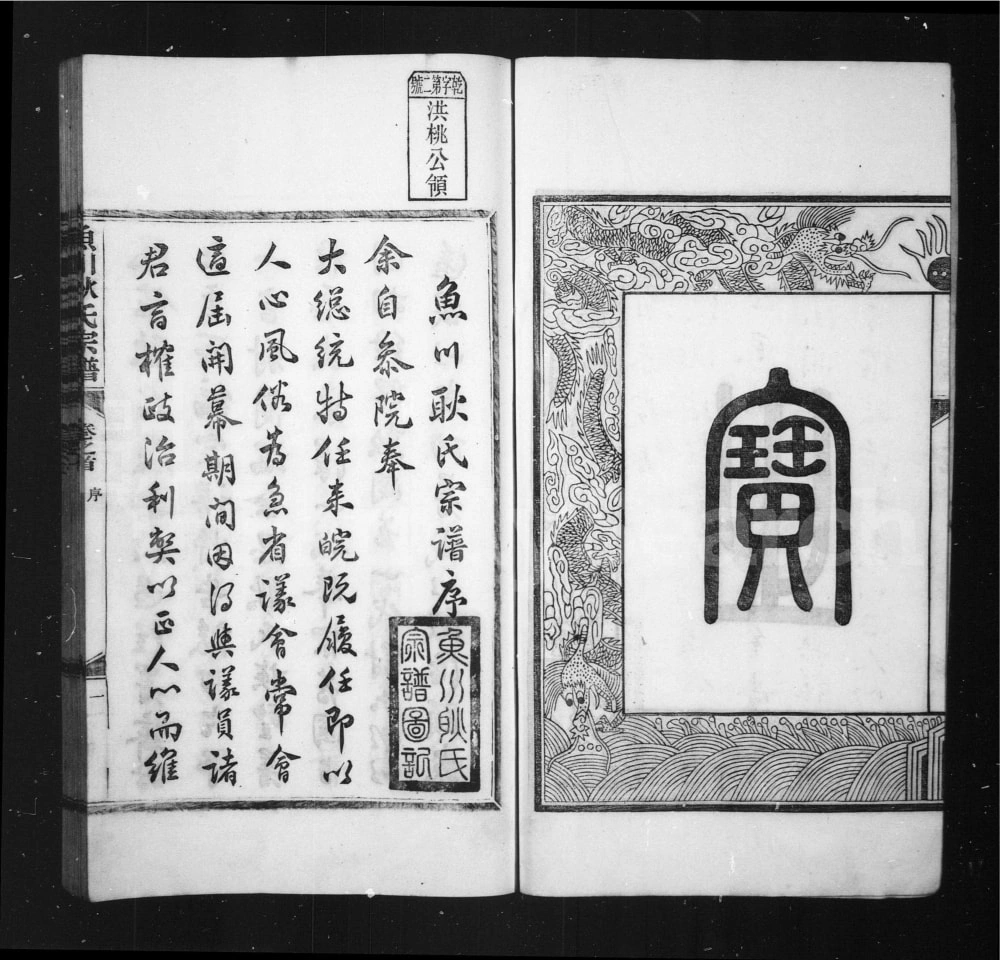 寶
乾字第二號
洪桃公領
魚川耿氏宗譜序
魚川耿氏
宗譜圖記
余自參院奉
大總統特任来皖既履任即以
人心風俗為急省議會常會
這屆開幕期間因得與議員諸
君言榷政治利弊以正人心而維
魚川耿氏宗譜
卷之首
序